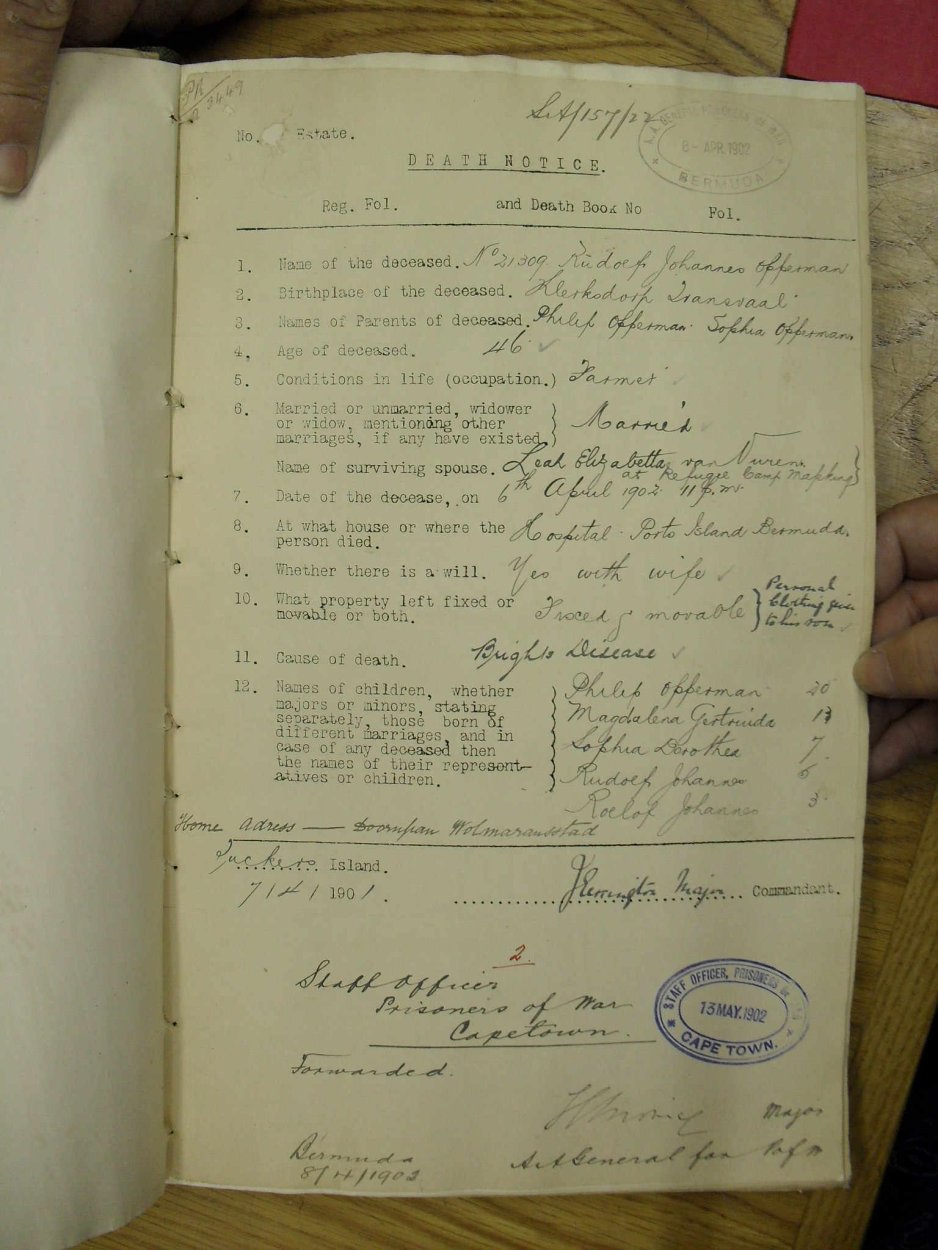 PR
2 3449
SA/157/22
A.A. GENERAL PRISONERS OF WAR
8- APR.1902
BERMUDA
No. Estate.
DEATH NOTICE.
Reg. Fol. and Death Book No Fol.
1. Name of the deceased. No 21309 Rudolf Johannes Opperman
2. Birthplace of the deceased. Klerksdorp Transvaal
3. Names of Parents of deceased. Philip Opperman. Sophia Opperman
4, Age of deceased. 46 ✓
5. Conditions in life (occupation.) Farmer ✓
6. Married or unmarried, widower
or widow, mentioning other
marriages, if any have existed.) } Married ✓
Name of surviving spouse. Leah Elizabetta van Vuren
at Refugie Camp Mapking }
7. Date of the decease, on 6th April 1902 11 p.m.
8. At what house or where the
person died. Hospital Ports Island Bermuda.
9. Whether there is a will. Yes with wife ✓
10. What property left fixed or
movable or both. Fixed & movable } Personal
Clothing given
to his son ✓
11. Cause of death. Brights Disease ✓
12. Names of children, whether
majors or minors, stating
separately, those born of
different marriages, and in
case of any deceased then
the names of their represent-
atives or children.
Philip Opperman 20
Magdalena Gertruida 13
Sophia Dorothea 7
Rudolf Johannes 6
Roelof Johannes 3
Home Adress — Doornpan Wolmaransstad
Tuckers Island.
7/4/1901. Major Commandant.
2.
Staff Officer
Prisoners of War
Capetown.
STAFF OFFICER, PRISONERS OF
13 MAY.1902
CAPE TOWN.
Forwarded.
Major
AA General for P of W
Bermuda
8/4/1902